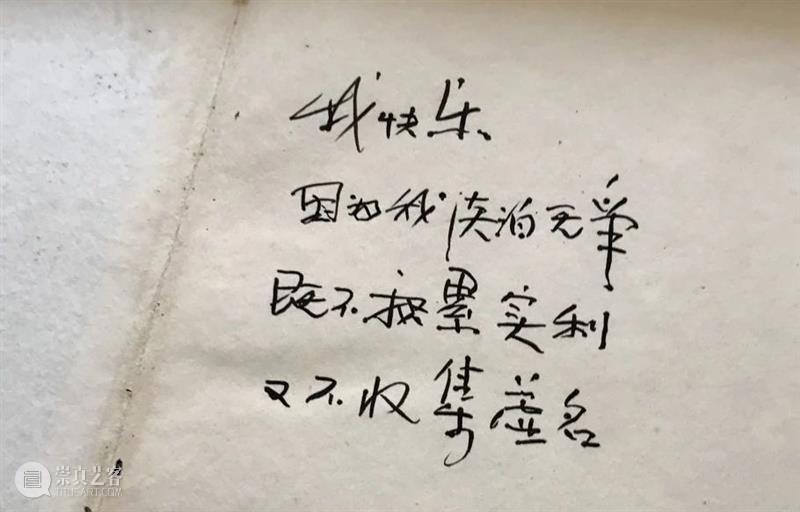 我快乐
因为我淡泊无争
既不积累实利
又不收集虚名
崇真艺客
TRUEART.COM